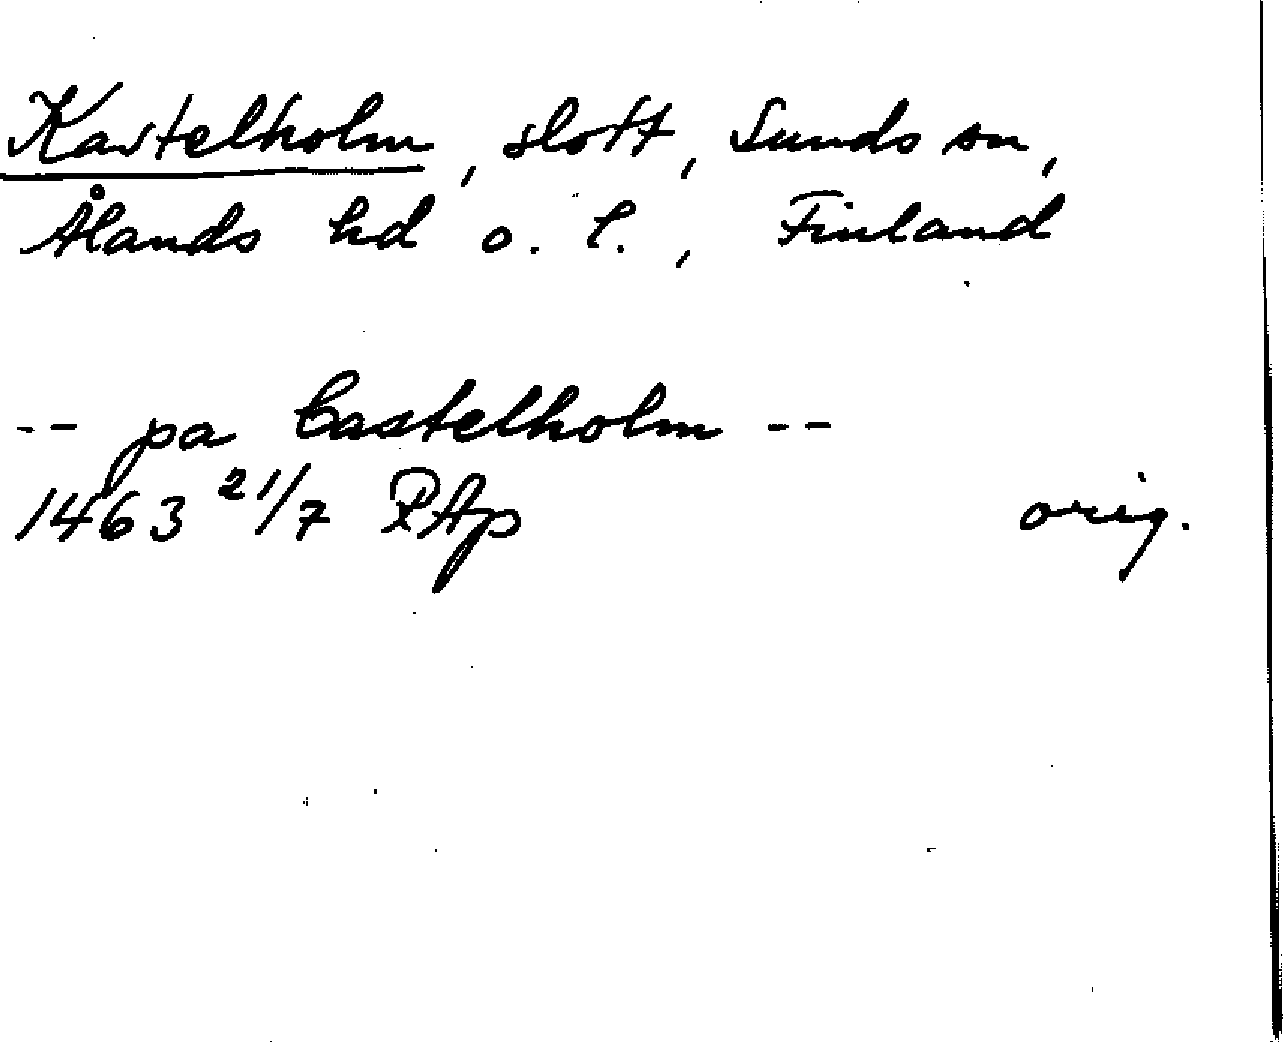 Kastelholm, slott, Sunds sn,
Ålands hd o. l., Finland
-- pa Castelholm --
1463 21/7 RAp orig.